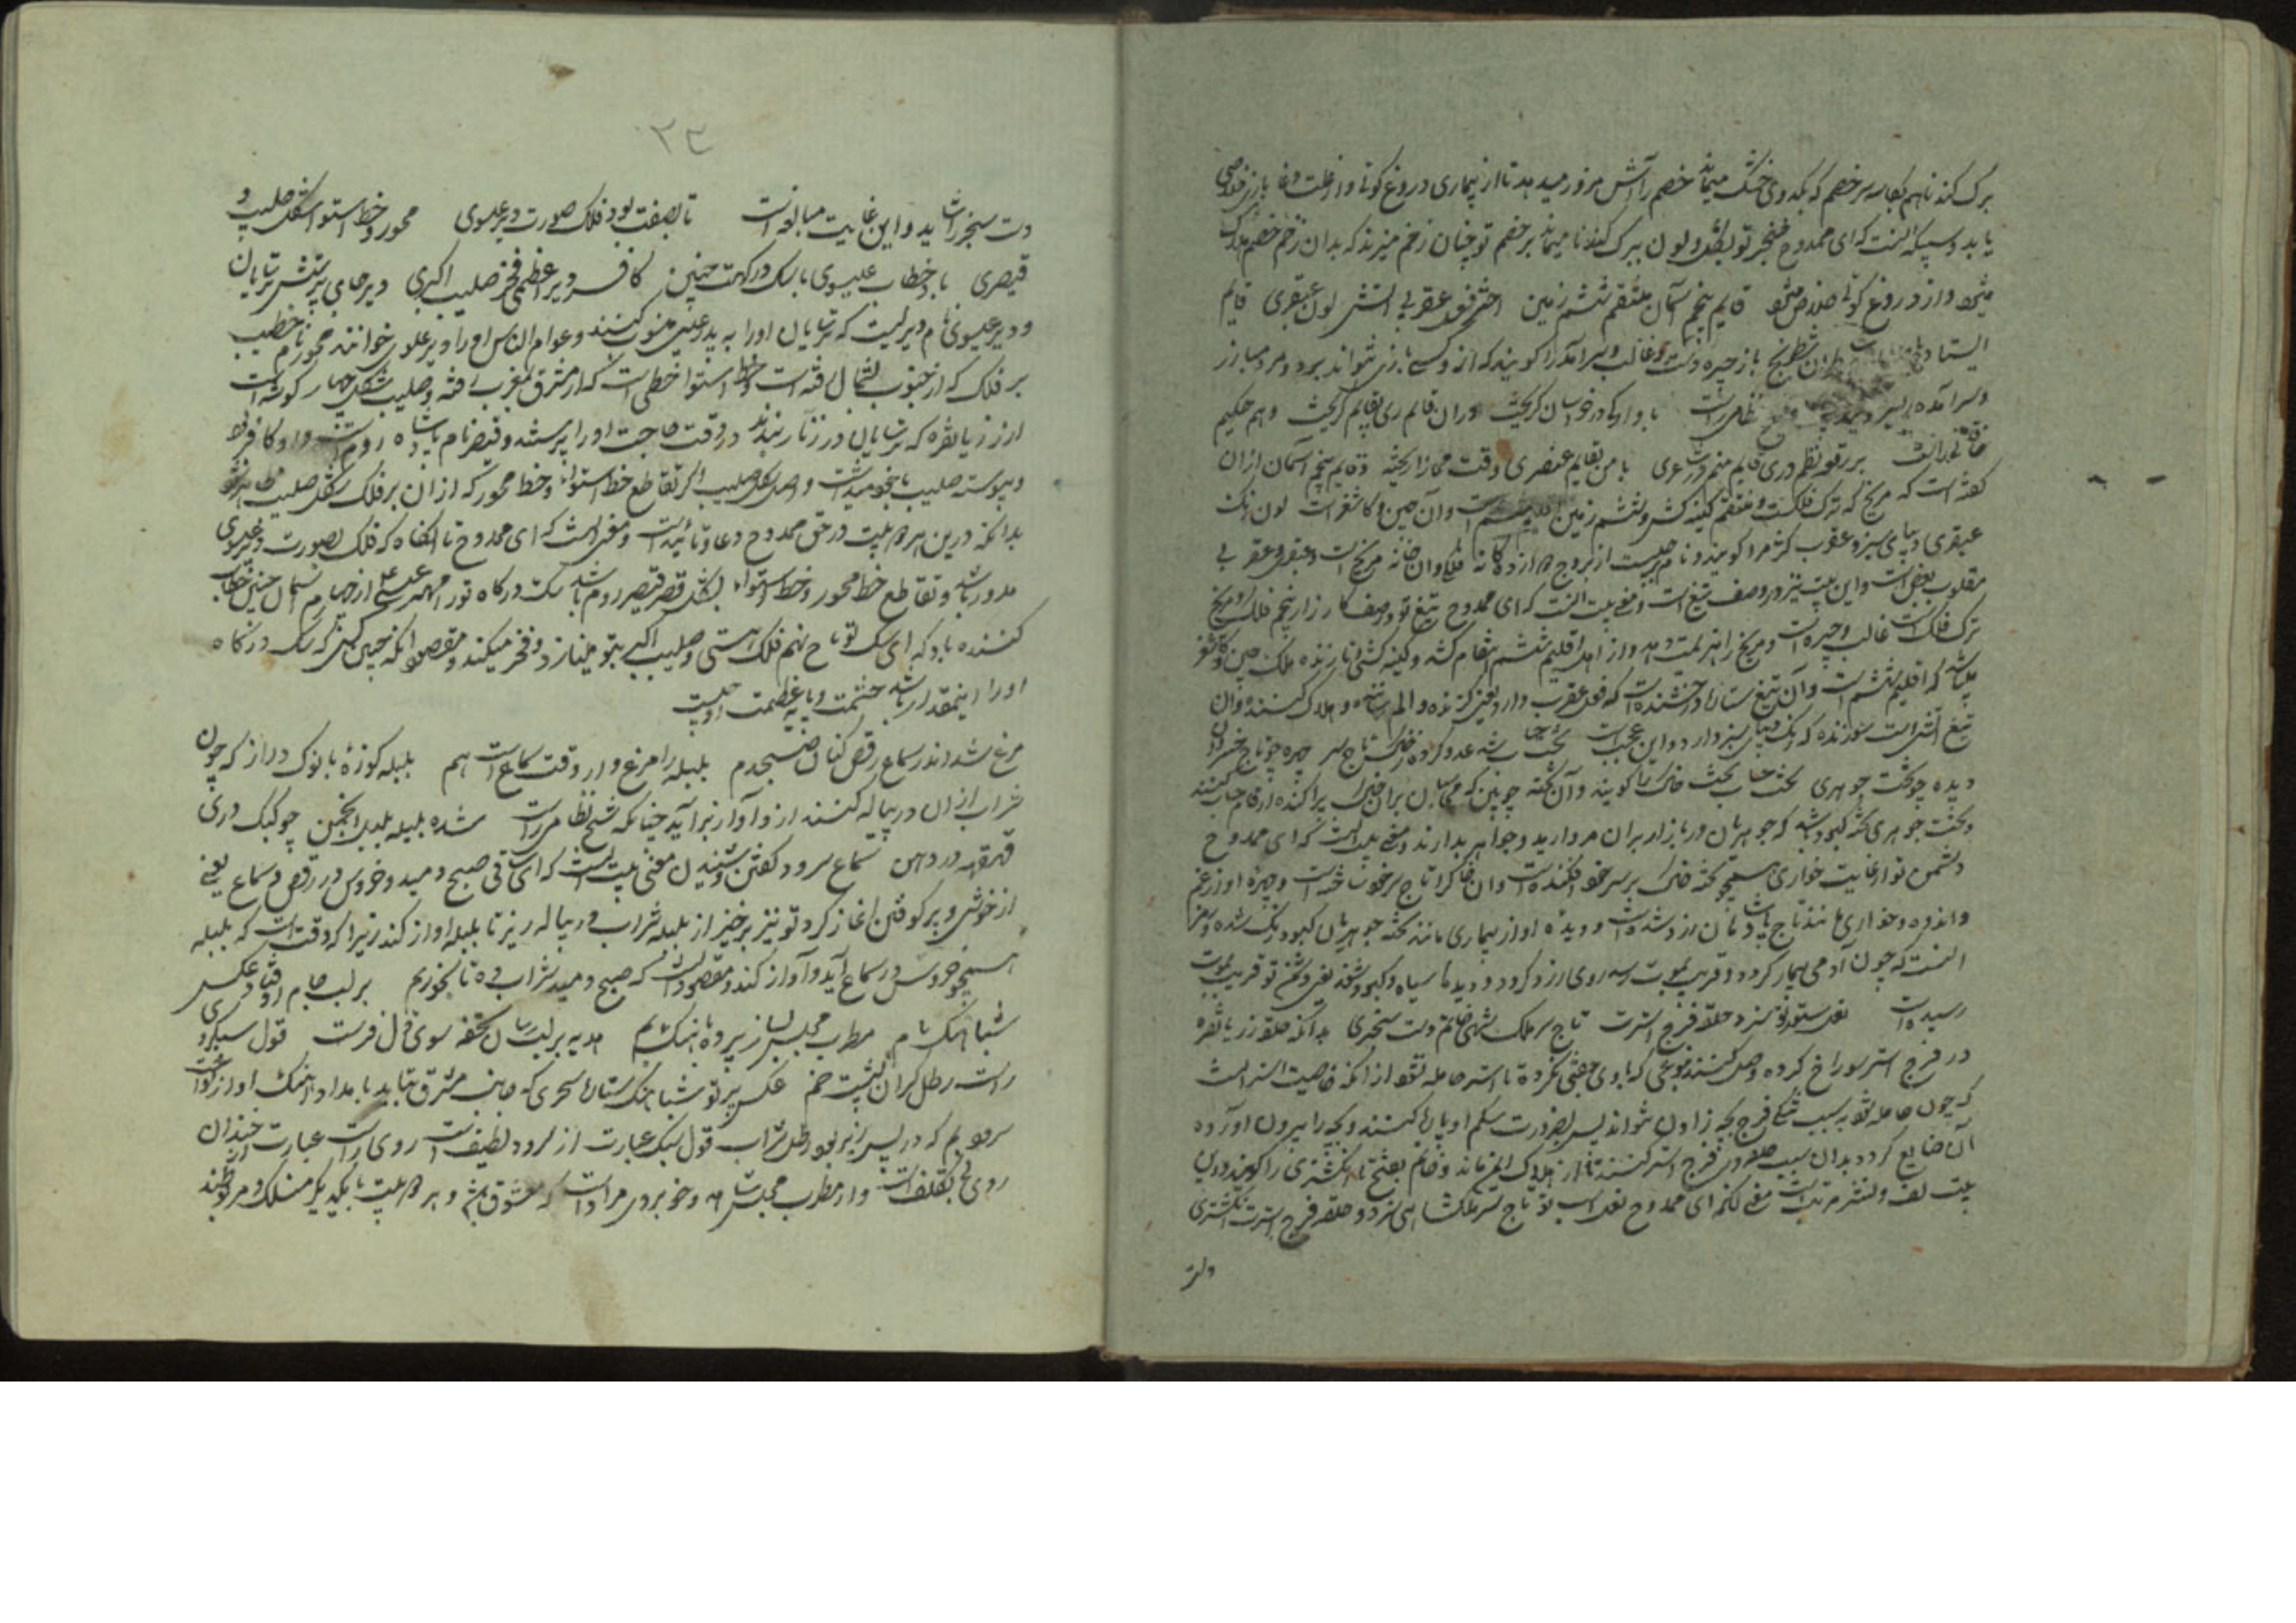 برک کند تا هم بکاسه سر خصم که بکدوی خشک میماند خصم را آتش مزور میدهد تا از بیماری دروغ کوئی و از علت دغا بازی خلاصی
یابد و سپکه انست که ای ممدوح خنجر تو بشکل و لون ببرک کندنا میماند بر خصم تو چنان زخم میزند که بدان زخم خصم هلاک
میشود و از دروغ کوئی خلاص میشود قایم پنجم آسمان منتقم ششم زمین اختر فوق عقربی آتش لون عبقری قایم
ایستاده شطرنج باز چیره دست و غالب و سرآمد را کویند که از و کسی بازی نتواند برد و مرد مبارز
و سرآمده نظامی راست با وارکا در خراسان کریخت دران قایم ری بقایم کریخت و هم حکیم
خاقانی راست بر رقعه نظم دری قایم منم در شاعری با من بقایم عنصری وقت مجازا ریخته و قایم پنجم آسمان ازان
کفته است که مریخ که ترک فلکست و منتقم کینه کش و ششم زمین اقلیم ششم است و آن چین و کاشغر است لون رنک
عبقری دیبای سبز و عقرب کژدم را کویند و نام برجیست از بروج دوازده کانه فلکی و آن خانه مریخ است و عبقری عقربی
مقلوب بعض است و این بیت نیز در وصف تیغ است و معنی بیت انست که ای ممدوح تیغ تو در صف کارزار پنجم فلک را و مریخ
ترک فلک است غالب و چیره است و مریخ را هزیمت دهد و از اهل اقلیم ششم انتقام کشد و کینه کشی نماید زنده ملک چین و کاشغر
میباشد که اقلیم ششم است و آن تیغ ستاره درخشنده است که فعل عقرب دارد یعنی کزنده و الم رساننده و هلاک کننده و آن
تیغ آتشی است سوزنده که رنک دیبای سبز دارد و این عجبست تخت حساب شد عدو کرده ز خاک تاج سر چهره چو تاج خسروان
دیده چو تخت جوهری تخت حساب تخت خاک را کویند و آن تخته چوبین که محاسبان بران خاک پراکنده ارقام حساب کنند
و تخت جوهری تخته کبود باشد که جوهریان در بازار بران مروارید و جواهر بدارند و معنی بیت انست که ای ممدوح
دشمن تو از غایت خواری همچو تخته خاک بر سر خود افکنده است و آن خاک را تاج سر خود ساخته است و چهره او از غم
و اندوه و خواری مانند تاج پادشاهان زرد شده است و دیده او از بیماری مانند تخته جوهریان کبود رنک شده و سر
انست که چون آدمی بیمار کردد و قریب بموت رسد روی زرد کردد و دیدها سیاه و کبود شود یعنی دشمن تو قریب بموت
رسیده است نعل ستور تو سزد حلقه فرج استرت تاج سر ملکشهی خاتم دست سنجری بدانکه حلقه زر یا نقره
در فرج استر سوراخ کرده وصل کنند بنوعی که با وی جفتی نکرده تا استر حامله نشود از آنکه خاصیت استر انست
که چون حامله شود بسبب تنکی فرج بچه زادن نتواند پس بضرورت شکم او پاره کنند و بچه را بیرون آورده
آن ضایع کردد بدان سبب حلقه در فرج استر کنند تا از هلاک ایمن ماند و خاتم بفتح تا انکشتری را کویند و درین
بیت لف و نشر مرتب است معنی انکه ای ممدوح نعل اسب تو تاج سر ملکشاهی سزد و حلقه فرج استرت انکشتری
دست
۲۳
دست سنجر را شاید و این غایت مبالغه است تا بصفت بود فلک صورت دیر عیسوی محور و خط استوا شکل صلیب و
قیصری باد خطاب عیسوی با سک درکهت چنین کافسر دیر اعظمی فخر صلیب اکبری دیر جای پرستش ترسایان
و دیر عیسوی نام دیریست که ترسایان او را به ید عیسی منسوب کنند و عوام الناس او را دیر علوی خوانند محور نام خطیست
بر فلک که از جنوب بشمال رفته است و خط استوا خطی است که از مشرق بمغرب رفته و صلیب شکل چهار کوشه است
از زر یا نقره که ترسایان در زنار بندند در وقت حاجت او را پرستند و قیصر نام پادشاه روم است و او کافر بود
و پیوسته صلیب با خود میداشت و اصل شکل صلیب اکبر تقاطع خط استوا و خط محور که ازان بر فلک شکل صلیب ظاهر شود
بدانکه درین هر دو بیت در حق ممدوح دعاء تابید است و معنی انست که ای ممدوح تا انکاه که فلک بصورت دیر عیسوی
مدور باشد و تقاطع خط محور و خط استوا بشکل قصر قیصر روم باشد سک درکاه تو را مهتر عیسی از چهارم آسمان چنین خطاب
کننده باد که ای سک تو تاج نهم فلک هستی و صلیب اکبر بتو مینازد و فخر میکند و مقصود انکه چنین کسی که سک درکاه
او را اینمقدار باشد حشمت و پایه عظمت او چیست
مرغ شد اندر سماع رقص کنان صبحدم بلبله را مرغ وار وقت سماع است هم بلبله کوزهٔ با نوک دراز که چون
شراب ازان در پیاله کنند ازو آواز برآید چنانکه شیخ نظامی راست شده بلبله بلبل انجمن چو کبک دری
قهقهه در دهن سماع سرود کفتن و شنیدن معنی بیت انست که ای ساقی صبح دمید و خروس در رقص و سماع یعنی
از خوشی و بر کوفتن آغاز کرد تو نیز برخیز از بلبله شراب در پیاله ریز تا بلبله آواز کند زیرا که وقت است که بلبله
همچو خروس در سماع آید و آواز کند و مقصود انست که صبح دمید شراب ده تا بخوریم بر لب جام اوفتاد عکس
شباهنک بام مطرب مجلس بساز پرده بآهنک بم هدیه بر لبت رسان تحفه سوی دل فرست قول سبک روی
راست رطل کران پشت خم عکس پرتو شباهنک ستاره سحری که جانب مشرق بتابد بامداد آهنک آواز راست
سرود بم که در پس زیر بود رطل شراب قول سبک عبارت از سرود لطیف است روی راست عبارت خندان
روی بی تکلف است و از مطرب مجلس شاهد و خوبروی مراد است که معشوق باشد و هر دو بیت با یکدیکر منسلک و مربوطند